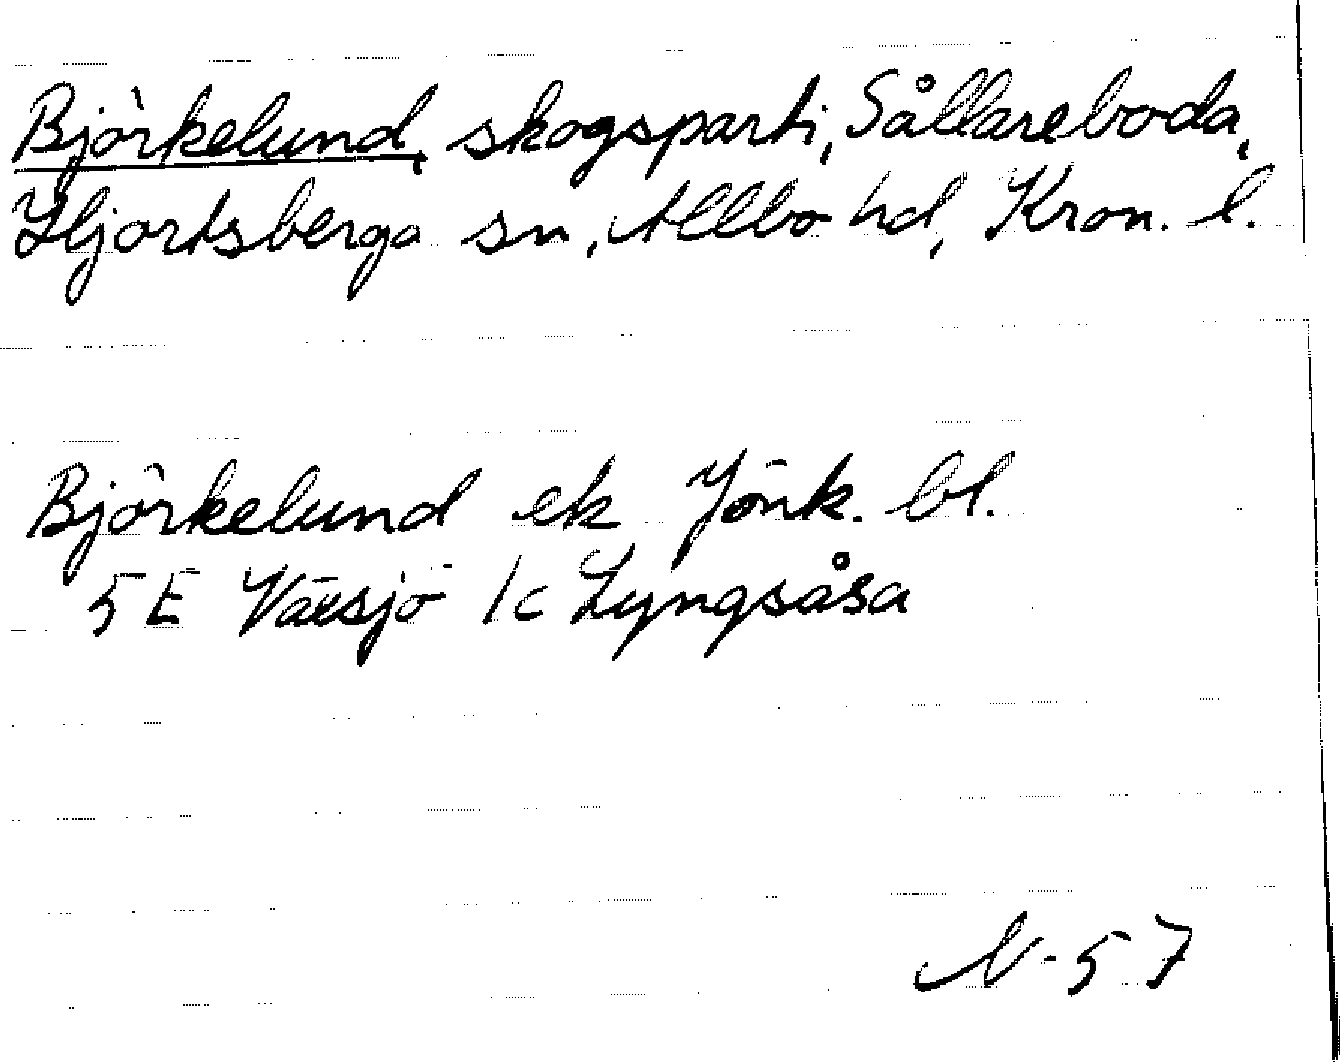 Björkelund, skogsparti, Sållareboda,
Hjortsberga sn, Allbo hd, Kron. l.
Björkelund ek Jönk. bl.
5 E Växsjö 1c Lyngsåsa
N-57